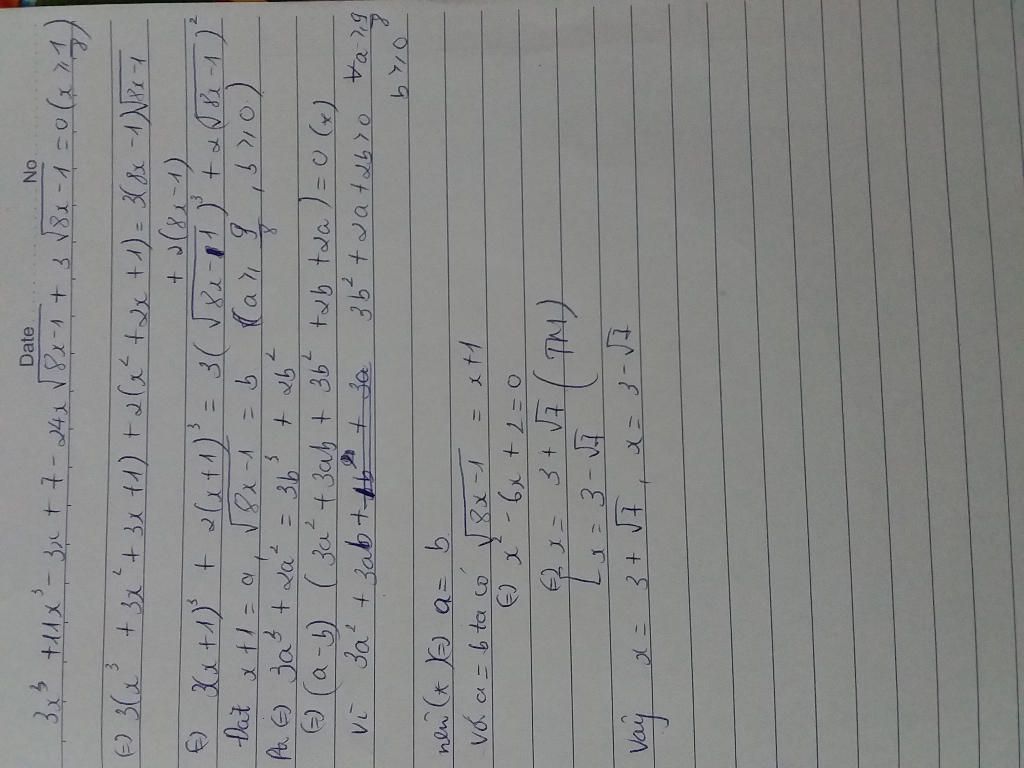 Date No
3x³ + 11x³ - 3x + 7 - 24x√(8x-1) + 3√(8x-1) = 0 (x ≥ 1/8)
(=) 3(x³ + 3x² + 3x + 1) + 2(x² + 2x + 1) = 3(8x - 1)√(8x-1)
+ 2(8x - 1)
(=) 3(x+1)³ + 2(x+1)³ = 3(√(8x-1))³ + 2(√(8x-1))²
Đặt x+1 = a, √(8x-1) = b (a ≥ 9/8, b ≥ 0)
Pt (=) 3a³ + 2a² = 3b³ + 2b²
(=) (a-b) (3a² + 3ab + 3b² + 2b + 2a) = 0 (*)
Vì 3a² + 3ab + 3b² + 2a + 2b > 0 ∀a ≥ 9/8
b ≥ 0
nên (*) (=) a = b
Với a = b ta có √(8x-1) = x+1
(=) x² - 6x + 2 = 0
(=) [ x = 3 + √7 (TM)
[ x = 3 - √7
Vậy x = 3 + √7, x = 3 - √7